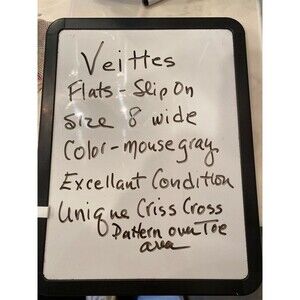 Veittes
Flats - Slip On
Size 8 wide
Color - mouse gray
Excellant Condition
Unique Criss Cross
Pattern over Toe
area